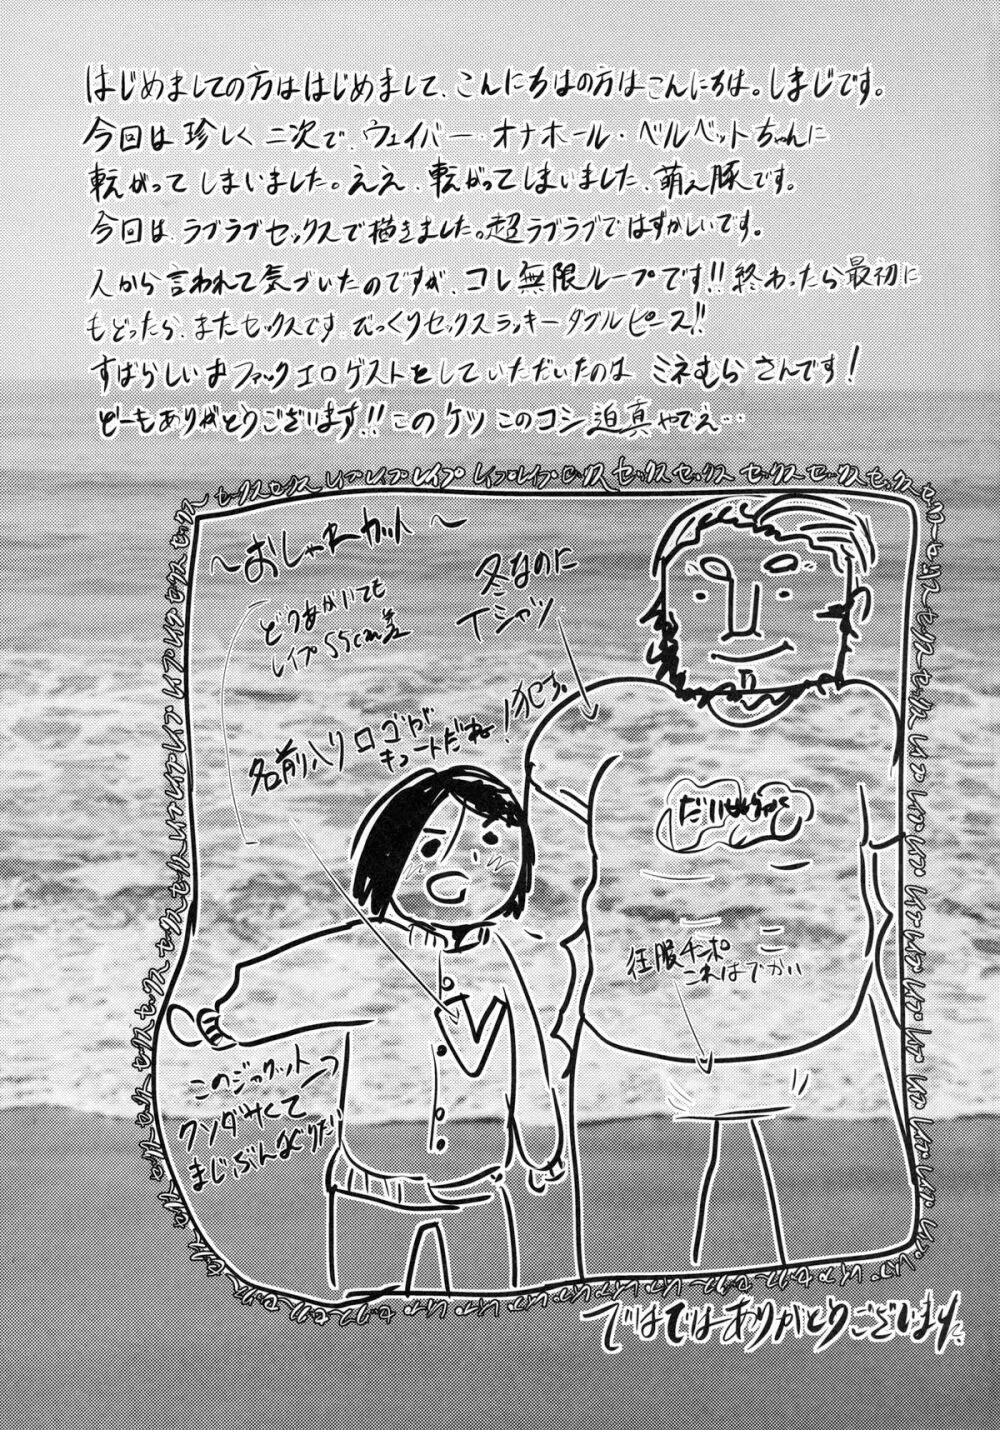 はじめましての方ははじめまして、こんにちはの方はこんにちは。しまじです。
今回は珍しく二次で、ウェイバー・オナホール・ベルベットちゃんに
転がってしまいました。ええ、転がってしまいました、萌え豚です。
今回は、ラブラブセックスで描きました。超ラブラブではずかしいです。
人から言われて気づいたのですが、コレ無限ループです!!終わったら最初に
もどったら、またセックスです、びっくりセックスラッキーダブルピース!!
すばらしいおファックエロゲストをしていただいたのは ミネむら さんです!
どーもありがとうございます!!このケツこのコシ迫真やでえ…
〜おしゃれカット〜
どうあがいても
レイプ 55cm差
冬なのに
Tシャツ
名前入りロゴが
キュートだね!犯す。
征服チンポ
これはでかい
このジャケット
クソダサくて
まじぶんなぐりたい
ではではありがとうございます。